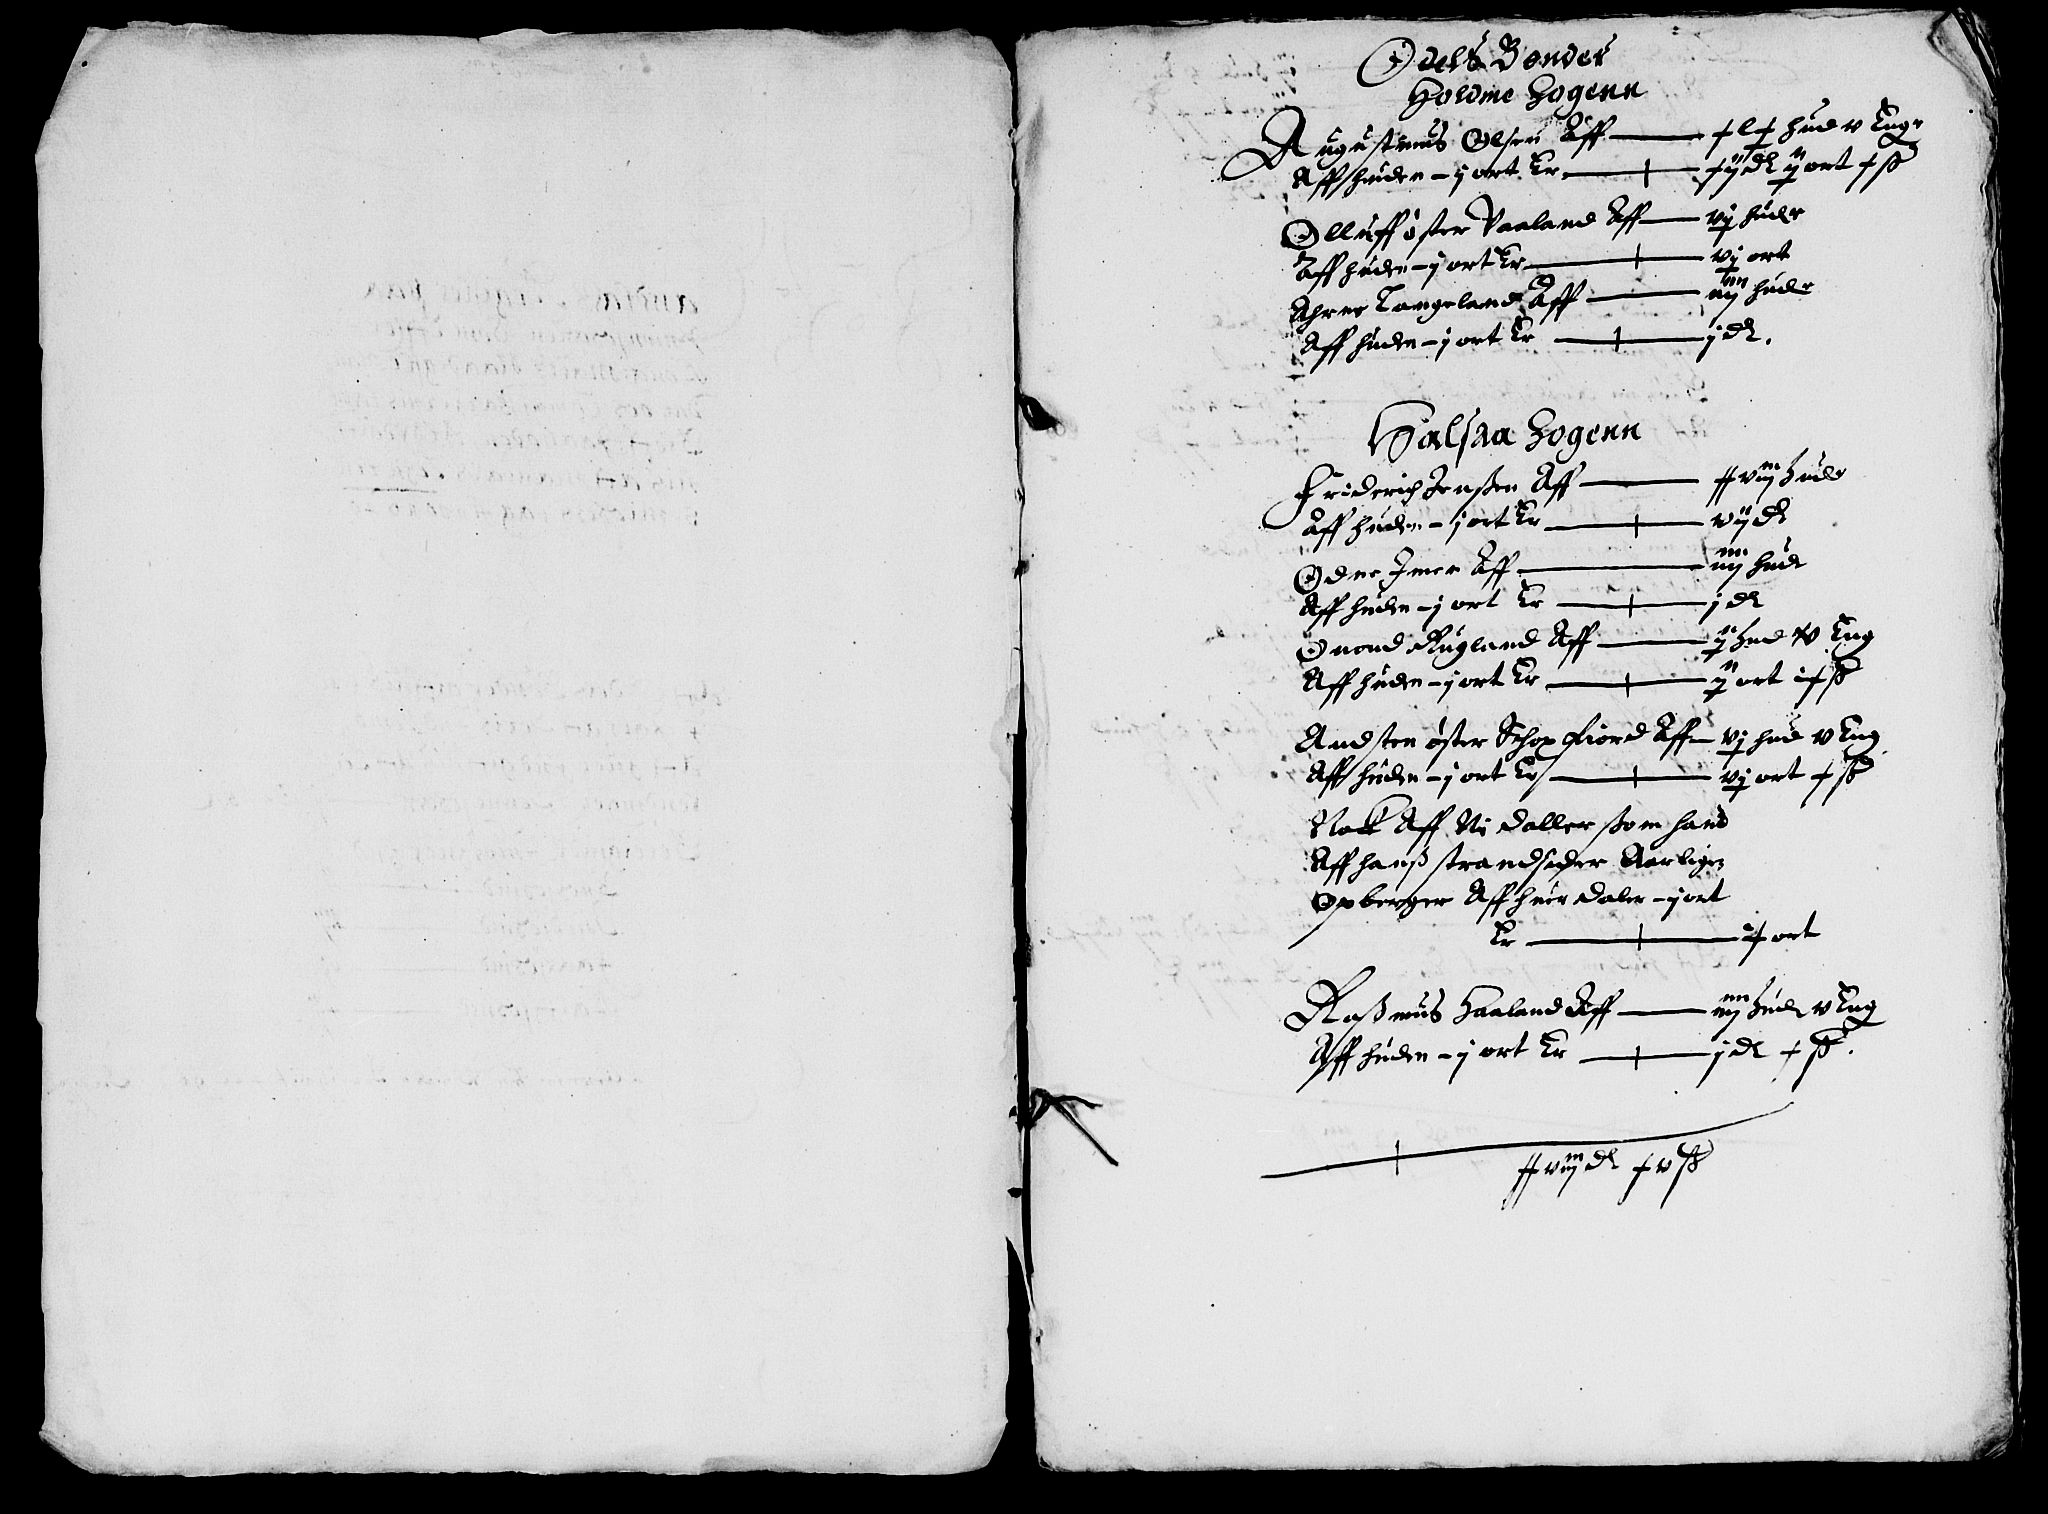 Odels Bønder
Holme Sogenn
Augustinus Olsen Aff — xlx hud v Eng
Aff huden – j ort Er — xij dl ij ort x ß
Olluff øster Vaaland Aff — vj huder
Aff huden – j ort Er — vj ort
Ahne Tangeland Aff — iiij huder
Aff huden – j ort Er — j dl.
Halsaa Sogenn
Friderich Jenßen Aff — xxviij huder
Aff huden – j ort Er — vij dl
Odne Imen Aff — iiij hude
Aff huden – j ort Er — j dl
Onond Rugland Aff — ij hud v Eng
Aff huden – j ort Er — ij ort x ß
Andsten øster Schopfiord Aff – vj hud v Eng
Aff huden – j ort Er — vj ort x ß
Nock Aff Ni daller som hand
Aff hanß strandsider Aarligen
Opberger Aff huer daler – j ort
Er — ix ort
Raßmus Haaland Aff — iiij hude v Eng
Aff huden – j ort Er — j dl x ß.
xxviij dl xv ß